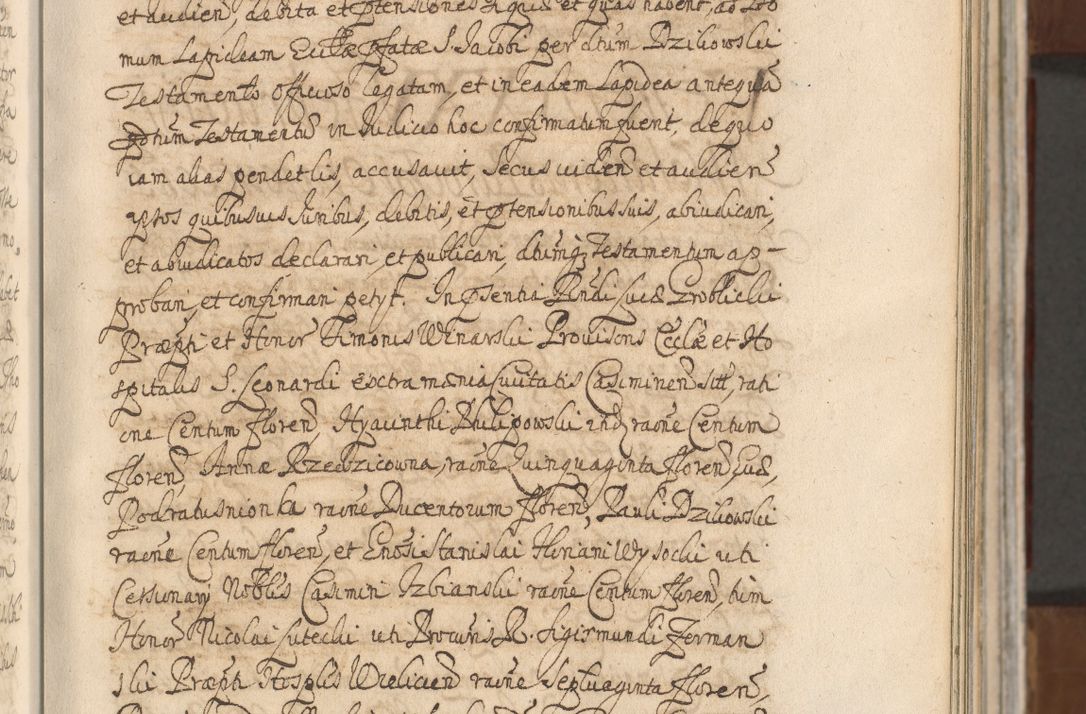 et audien, debita et ptensiones si quas et quas habent, ad Do
mum Lapideam Ecclæ pfatæ S. Jacobi per dtum Dzikowski
Testamento officioso legatam, et in eadem Lapidea antequa
pdtum Testamentū in Judicio hoc confirmatum fuerit, de quo
iam alias pendet lis, accusavit, secus viden et audien
iptos quibusvis Juribus, debitis, et ptensionibus suis, abiudicari,
et abiudicatos declarari, et publicari, dtumq Testamentum ap-
probari, et confirmari petyt. In psentia Rndi Zroblicki
Præpti et Honor Simonis Winarski Provisoris Ecclæ et Ho
spitalis S. Leonardi extra mænia Civitatis Casimirien sitt, rati
one Centum floren, Hyacinthi Philipowski raone Centum
floren, Annæ Rzedzicowna, raone Quinquaginta floren,
Podratusnionka raone Ducentorum floren, Pauli Dzikowski
raone Centum floren, et Gnosi Stanislai Floriani Wysocki uti
Cessionary Noblis Casimiri Izbianski raone Centum floren, tum
Honor Nicolai Sutecki uti Procuris R. Sigismundi Zerman
ski Præpti Hosplis Wielicien raone Septuaginta floren,